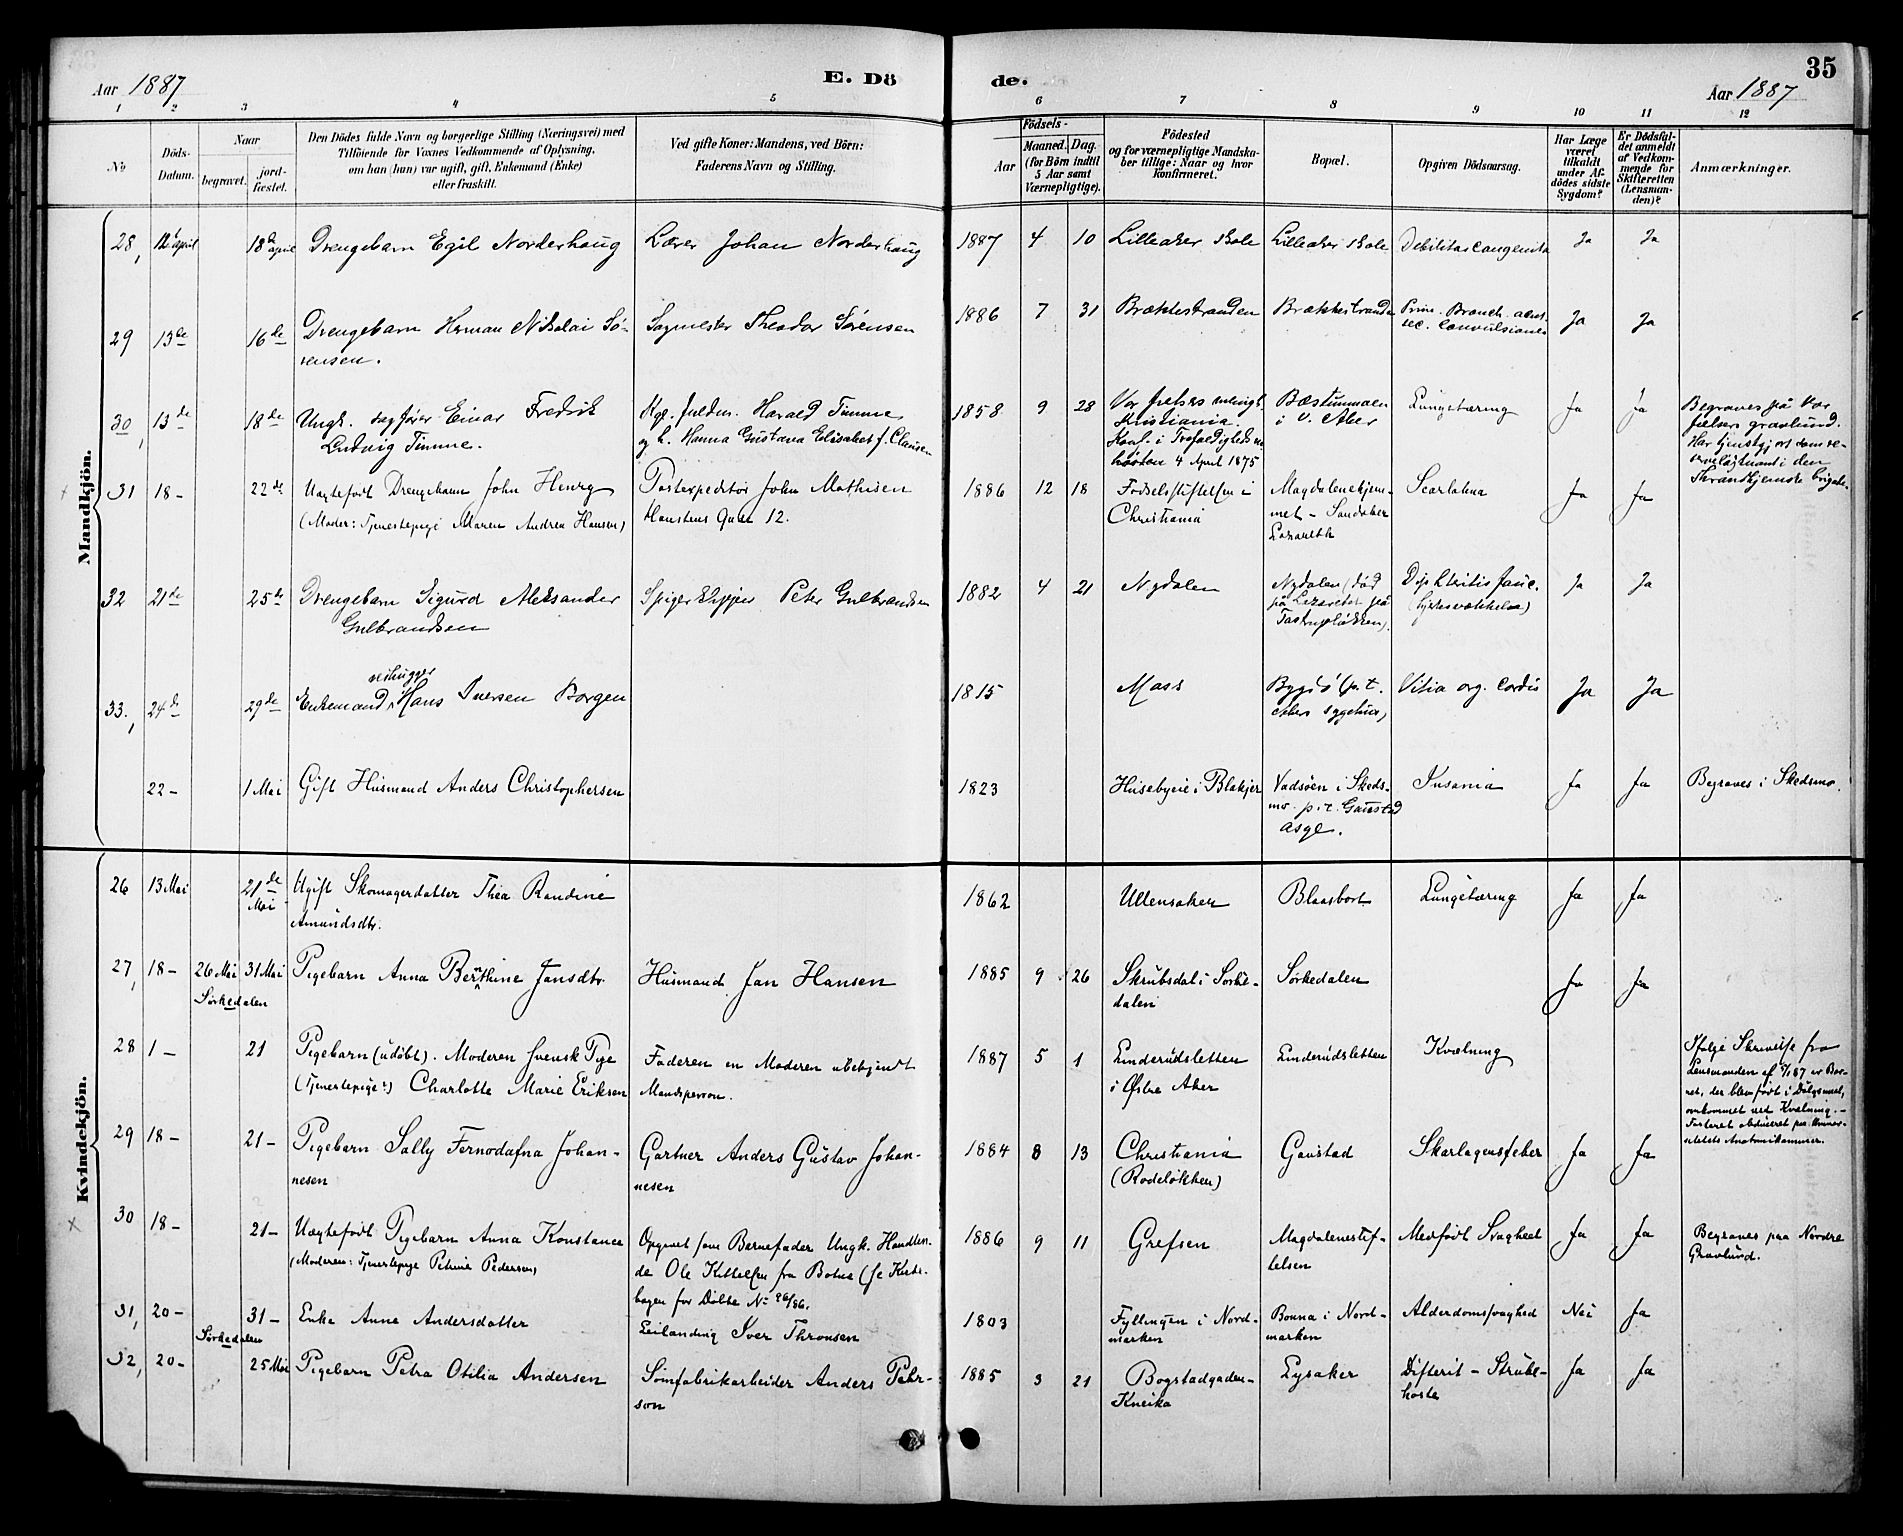 Aar 1887
E. Dö
de.
35
Aar 1887
1 2 3 4 5 6 7 8 9 10 11 12
No
Döds-
Datum.
Naar
begravet.
jord-
fæstet.
Den Dödes fulde Navn og borgerlige Stilling (Næringsvei) med
Tilföiende for Voxnes Vedkommende af Oplysning,
om han (hun) var ugift, gift, Enkemand (Enke)
eller fraskilt.
Ved gifte Koner: Mandens, ved Börn:
Faderens Navn og Stilling.
Födsels-
Aar
Maaned.
Dag.
(for Börn indtil
5 Aar samt
Værnepligtige).
Födested
og for værnepligtige Mandska-
ber tillige: Naar og hvor
Konfirmeret.
Bopæl.
Opgiven Dödsaarsag.
Har Læge
været
tilkaldt
under Af-
dödes sidste
Sygdom?
Er Dödsfal-
det anmeldt
af Vedkom-
mende for
Skifteretten
(Lensman-
den)?
Anmærkninger.
Mandkjön.
28, 12 april 18de april Drengebarn Egil Norderhaug Lærer Johan Norderhaug 1887 4 10 Lilleaker skole Lilleaker skole Debilitas congenita Ja Ja
29 13de 16de Drengebarn Herman Nikolai Sö-
rensen.
Sagmester Theodor Sørensen 1886 7 31 Brækkestranden Brækkestranden Prim. Bronch. acut.
sec. Convulsiones
Ja Ja
30, 13de 18de Ungk. sagfører Einar Fredrik
Ludvig Timme.
Kgl. fuldm. Harald Timme
og h. Hanna Gustava Elisabet f. Clausen
1858 9 28 Vor frelsers menigh.
Kristiania.
Konf. i Trefoldigheds
4 April 1875
i V. Aker
Lungetæring Ja Ja
Begraves på Vor
frelsers gravlund.
Har tjenstgjort som re-
i den
Thronhjemske brigade.
31 18- 22de Uægtefødt Drengebarn John Henry
(Moder: Tjenestepige Maren Andrea Hansen)
Postexpeditør John Mathisen
Hanstens Gade 12.
1886 12 18 Fødselsstiftelsen i
Christiania
Magdalenehjem-
met - Sandaker
Lazareth
Scarlatina Ja Ja
32 21de 25de Drengebarn Sigurd Aleksander
Gulbrandsen
Spigerklipper Peter Gulbrandsen 1882 4 21 Nydalen Nydalen (død
på Lazaretet på
Tastrupløkken).
Diphteritis fauc.
Ja Ja
33., 24de 29de Enkemand, veihugger Hans Iversen Borgen 1815 Moss Bygdø (p.t.
Akers sygehus)
Vitia org. cordis Ja Ja
22- 1 Mai Gift Husmand Anders Christophersen 1823 Husebyeie i Blakjer Vadsöen i Skeds-
mo. p.t. Gaustad
Asyl.
Insania Ja Ja Begraves i Skedsmo.
Kvindekjön.
26 13 Mai 21de Mai Ugift Skomagerdatter Thea Randine
Amundsdtr.
1862 Ullensaker Blaasbort Lungetæring Ja Ja
27, 18- 26 Mai
Sørkedalen
31 Mai Pigebarn Anna Bernthine Jansdtr. Husmand Jan Hansen 1885 9 26 Skrubsdal i Sørke-
dalen
Sørkedalen Ja Ja
28 1- 21 Pigebarn (udøbt). Moderen svensk Pige
(Tjenestepige?) Charlotte Marie Eriksen
Faderen en Moderen ubekjendt
Mandsperson.
1887 5 1 Linderudsletten
i Østre Aker
Linderudsletten Kvælning
Ifølge Skrivelse fra
Lensmanden af er Bar-
net, der blev født i Dølgsmaal,
omkommet ved Kvælning. -
29 18- 21- Pigebarn Sally Fernodafna Johan-
nesen
Gartner Anders Gustav Johan-
nesen
1884 8 13 Christiania
(Rodeløkken)
Gaustad Skarlagensfeber Ja Ja
30 18- 21- Uægtefødt Pigebarn Anna Konstance
(Moderen: Tjenestepige Petrine Pedersen)
Opgivet som Barnefader Ungk. Handlen-
de Ole Kittelsen fra Botne (se Kirke-
bogen for Døbte No 96/86.
1886 9 11 Grefsen Magdalenestif-
telsen
Medfødt Svaghed Ja Ja Begraves paa Nordre
Gravlund.
31, 20- Sørkedalen 31- Enke Anne Andersdatter Leilænding Iver Thronsen 1803 Fyllingen i Nord-
marken
Bonna i Nord-
marken
Alderdomssvaghed Nei Ja
32, 20- 25 Mai Pigebarn Petra Otilia Andersen Sømfabrikarbeider Anders Pehr-
son
1885 3 21 Bogstadgaden-
Kneika
Lysaker Difterit - Strube-
hoste
Ja Ja